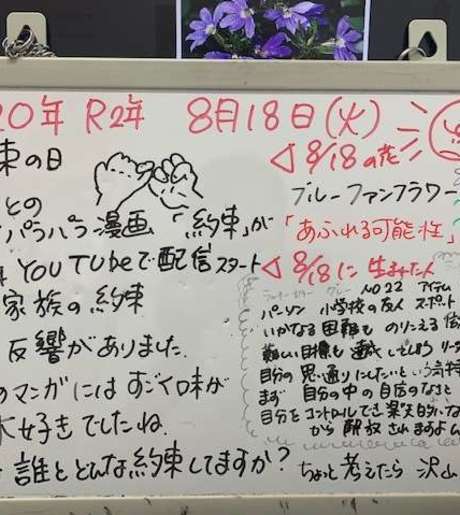 20年 R2年 8月18日(火)
束の日
との
パラパラ漫画「約束」が
YOUTUbeで配信スタート
家族の約束
反響がありました.
のマンガにはすごく味が
大好きでしたね.
誰とどんな約束してますか?
◁8/18の花
ブルーファンフラワー
「あふれる可能性」
◁8/18に生まれた人
NO22 アイテム
パーソン 小学校の友人 スポット
いかなる困難も のりこえる
難しい目標も 達成 してしまう リーダ
自分の思い通りにしたいという気持
まず 自分の中の自信のなさと
自分をコントロールでき
から 解放されますよ
ちょっと考えたら 沢山